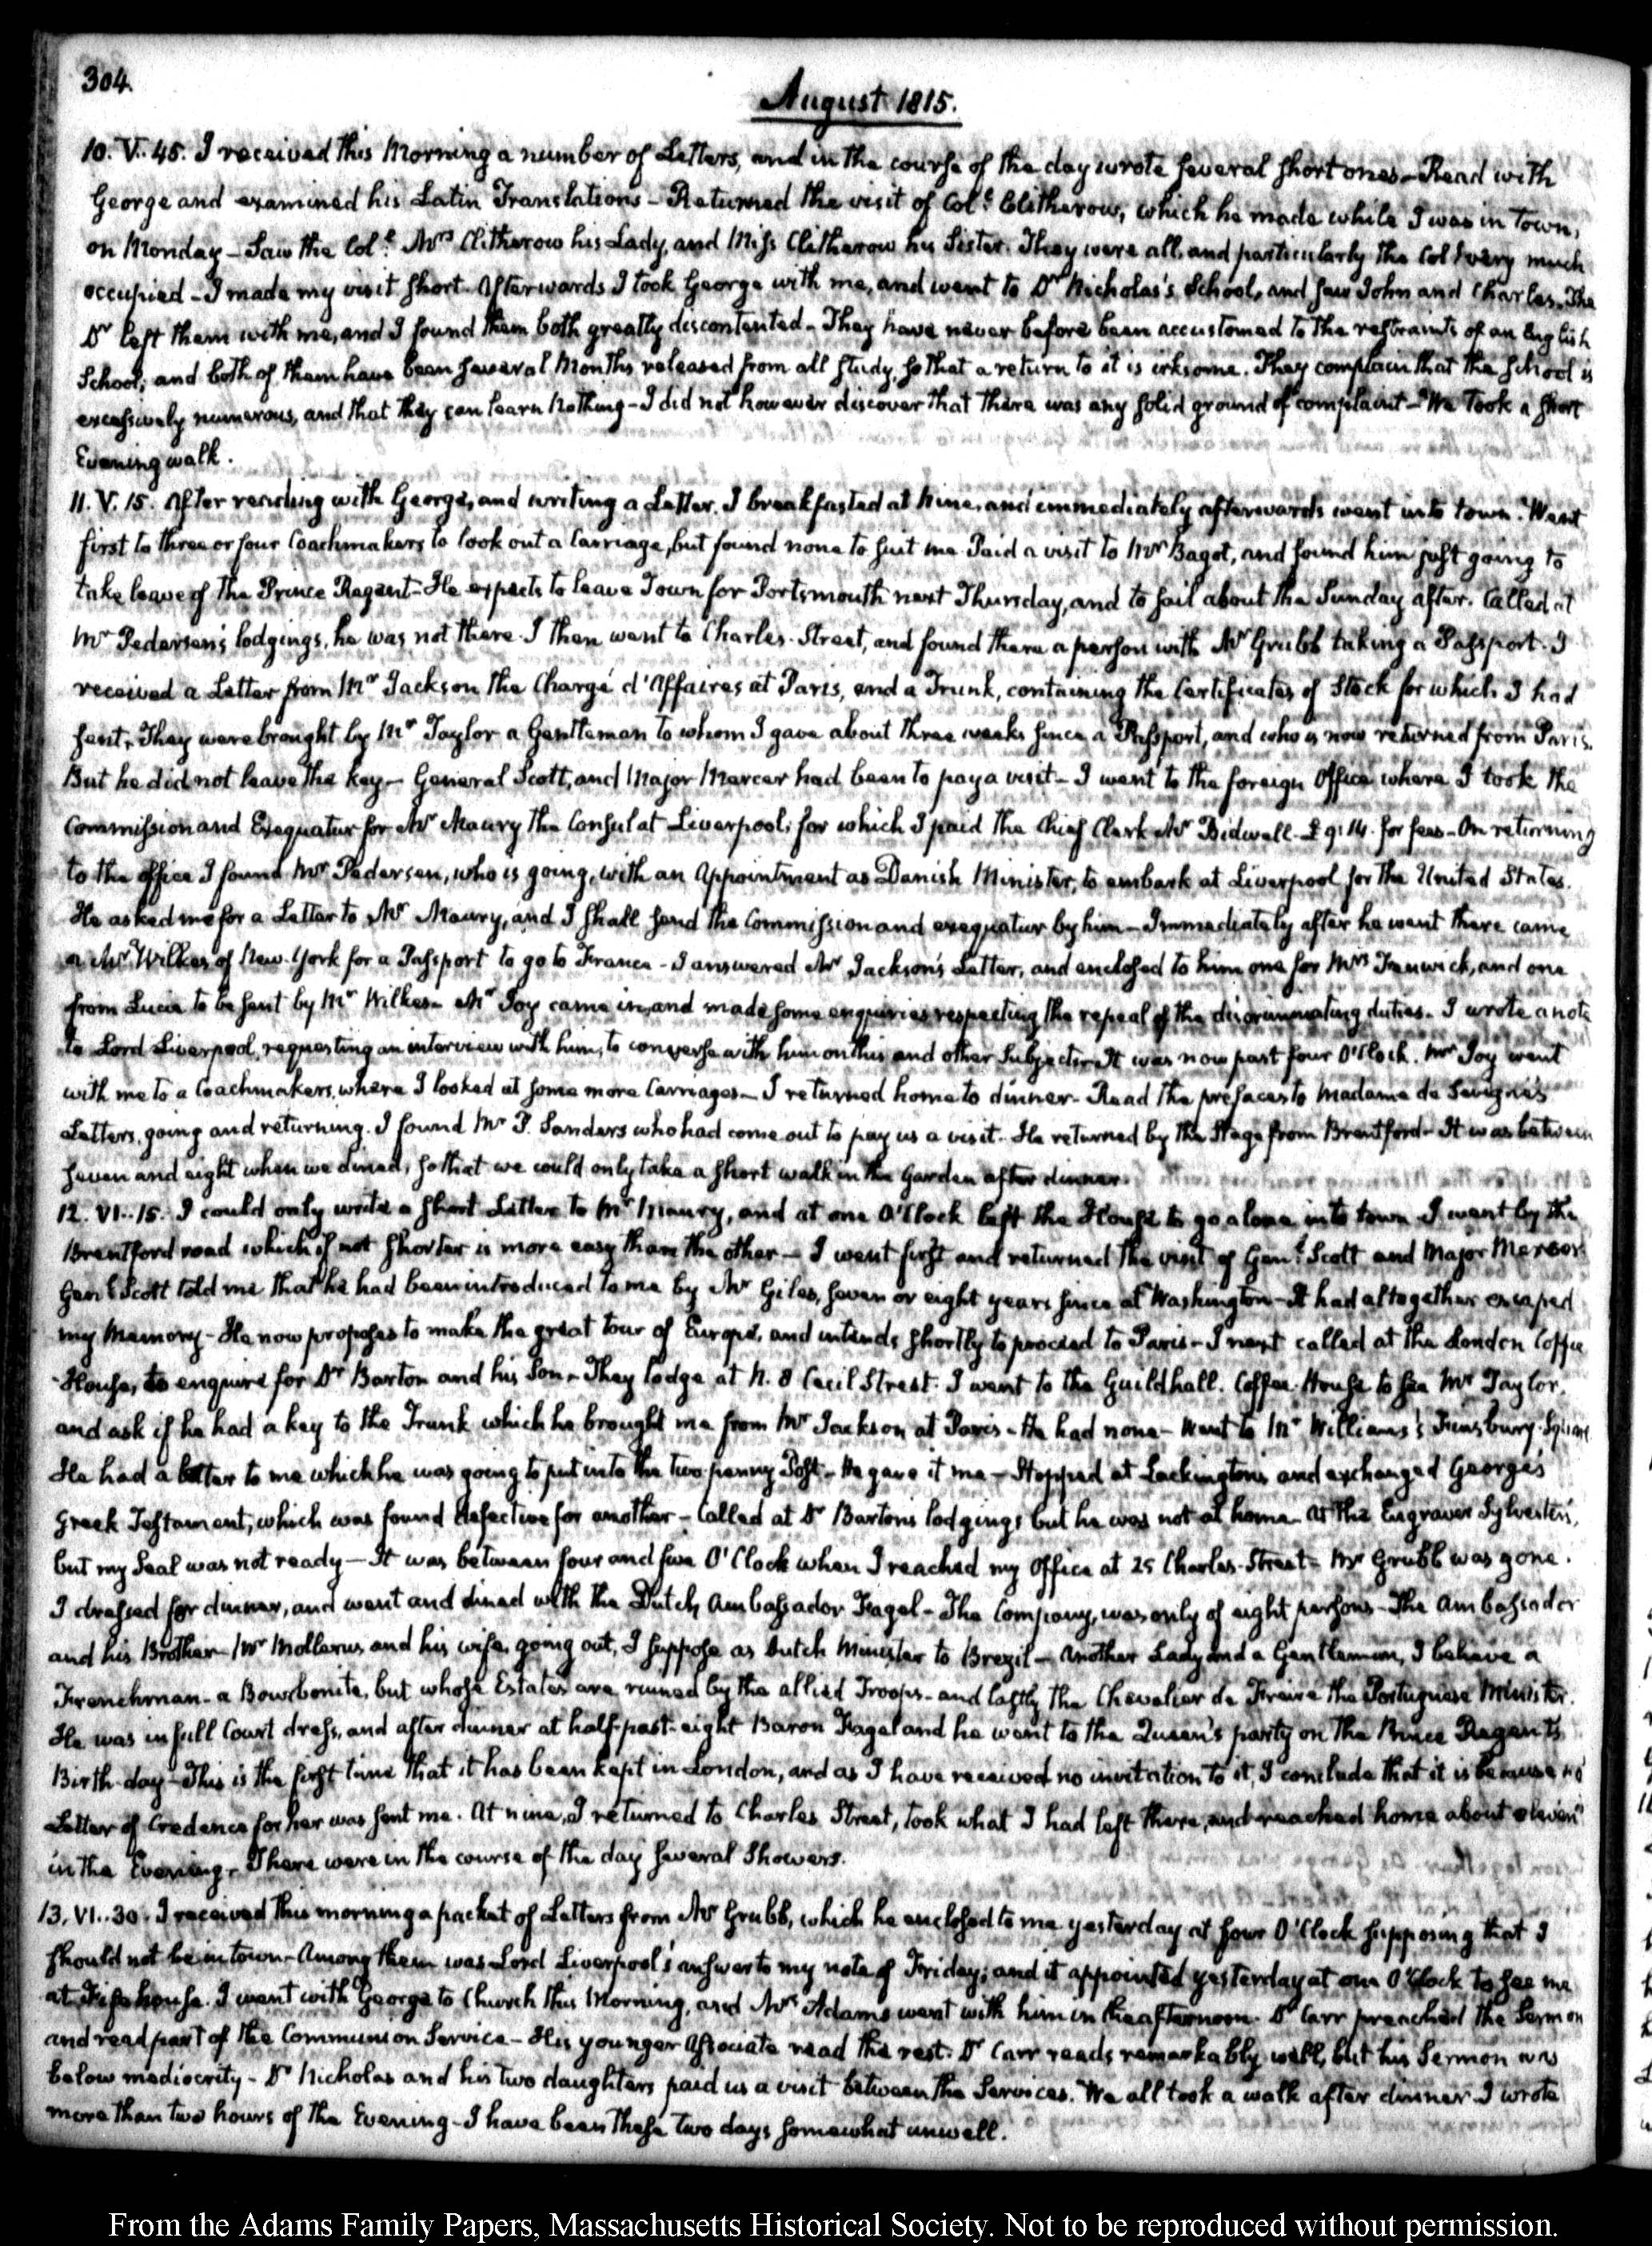 304.
August 1815.
10. V. 45. I received this Morning a number of Letters, and in the course of the day wrote several short ones - Read with
George and examined his Latin Translations - Returned the visit of Col.l Clitherow, which he made while I was in town,
on Monday - Saw the Col.l Mrs Clitherow his Lady, and Miss Clitherow his Sister. They were all, and particularly the Col.l very much
occupied - I made my visit short. Afterwards I took George with me, and went to Dr Nicholas's School, and saw John and Charles. The
Dr left them with me, and I found them both greatly discontented - They have never before been accustomed to the restraints of an English
School; and both of them have been several Months released from all study, so that a return to it is irksome. They complain that the school is
excessively numerous, and that they can learn nothing - I did not however discover that there was any solid ground of complaint - We took a short
Evening walk.
11. V. 15. After reading with George, and writing a Letter, I breakfasted at nine, and immediately afterwards went into town. Went
first to three or four Coachmakers to look out a Carriage, but found none to suit me. Paid a visit to Mr Bagot, and found him just going to
take leave of the Prince Regent - He expects to leave Town for Portsmouth next Thursday, and to sail about the Sunday after. Called at
Mr Pedersen's lodgings, he was not there. I then went to Charles-Street, and found there a person with Mr Grubb taking a Passport. I
received a Letter from Mr Jackson the Chargé d'Affaires at Paris, and a Trunk, containing the Certificates of Stock for which I had
sent. They were brought by Mr Taylor a Gentleman to whom I gave about three weeks since a Passport, and who is now returned from Paris.
But he did not leave the key - General Scott, and Major Mercer had been to pay a visit - I went to the foreign Office where I took the
Commission and Exequatur for Mr Maury the Consul at Liverpool; for which I paid the Chief Clerk Mr Bidwell £9:14. for fees - On returning
to the office I found Mr Pedersen, who is going, with an Appointment as Danish Minister, to embark at Liverpool for the United States.
He asked me for a Letter to Mr Maury, and I shall send the Commission and exequatur by him - Immediately after he went there came
a Mr Wilkes of New-York for a Passport to go to France - I answered Mr Jackson's Letter, and enclosed to him one for Mrs Fenwick, and one
from Lucia to be sent by Mr Wilkes - Mr Joy came in, and made some enquiries respecting the repeal of the discriminating duties. I wrote a note
to Lord Liverpool, requesting an interview with him, to converse with him on this and other Subjects - It was now past four O'Clock. Mr Joy went
with me to a Coachmakers, where I looked at some more Carriages - I returned home to dinner - Read the prefaces to Madame de Sevigné's
Letters, going and returning. I found Mr P. Sanders who had come out to pay us a visit. He returned by the Stage from Brentford - It was between
seven and eight when we dined, so that we could only take a short walk in the Garden after dinner.
12. VI. 15. I could only write a short Letter to Mr Maury, and at one O'Clock left the House to go alone into town I went by the
Brentford road which if not shorter is more easy than the other - I went first and returned the visit of Gen.l Scott and Major Mercer
Gen.l Scott told me that he had been introduced to me by Mr Giles, seven or eight years since at Washington - It had altogether escaped
my Memory - He now proposes to make the great tour of Europe, and intends shortly to proceed to Paris - I next called at the London Coffee
House, to enquire for Dr Barton and his Son - They lodge at N. 8 Cecil Street. I went to the Guildhall. Coffee-House to see Mr Taylor,
and ask if he had a key to the Trunk which he brought me from Mr Jackson at Paris - He had none - Went to Mr Williams's Finsbury-Square
He had a letter to me which he was going to put into the two penny Post - He gave it me - Stopped at Lackington's and exchanged George's
Greek Testament, which was found defective for another - Called at Dr Barton's lodgings but he was not at home - At the Engraver Sylvester's,
but my Seal was not ready - It was between four and five O'Clock when I reached my Office at 25 Charles-Street - Mr Grubb was gone.
I dressed for dinner, and went and dined with the Dutch Ambassador Fagel - The Company, was only of eight persons - The Ambassador
and his Brother - Mr Mollerus and his wife, going out, I suppose as Dutch Minister to Brezil - Another Lady and a Gentleman, I believe a
Frenchman - a Bourbonite, but whose Estates are ruined by the allied Troops - and lastly the Chevalier de Freire the Portuguese Minister.
He was in full Court dress, and after dinner at half-past eight Baron Fagel and he went to the Queen's party on the Prince Regent's
Birth-day - This is the first time that it has been kept in London, and as I have received no invitation to it, I conclude that it is because no
Letter of Credence for her was sent me. At nine, I returned to Charles Street, took what I had left there, and reached home about eleven
in the Evening - There were in the course of the day several Showers.
13. VI. 30. I received this morning a packet of Letters from Mr Grubb, which he enclosed to me yesterday at four O'Clock supposing that I
should not be in town - Among them was Lord Liverpool's answer to my note of Friday; and it appointed yesterday at one O'Clock to see me
at Fife house. I went with George to Church this Morning, and Mrs Adams went with him in the afternoon. Dr Carr preached the Sermon
and read part of the Communion Service - His younger Associate read the rest. Dr Carr reads remarkably well, but his Sermon was
below mediocrity - Dr Nicholas and his two daughters paid us a visit between the Services. We all took a walk after dinner. I wrote
more than two hours of the Evening - I have been these two days somewhat unwell.
From the Adams Family Papers, Massachusetts Historical Society. Not to be reproduced without permission.